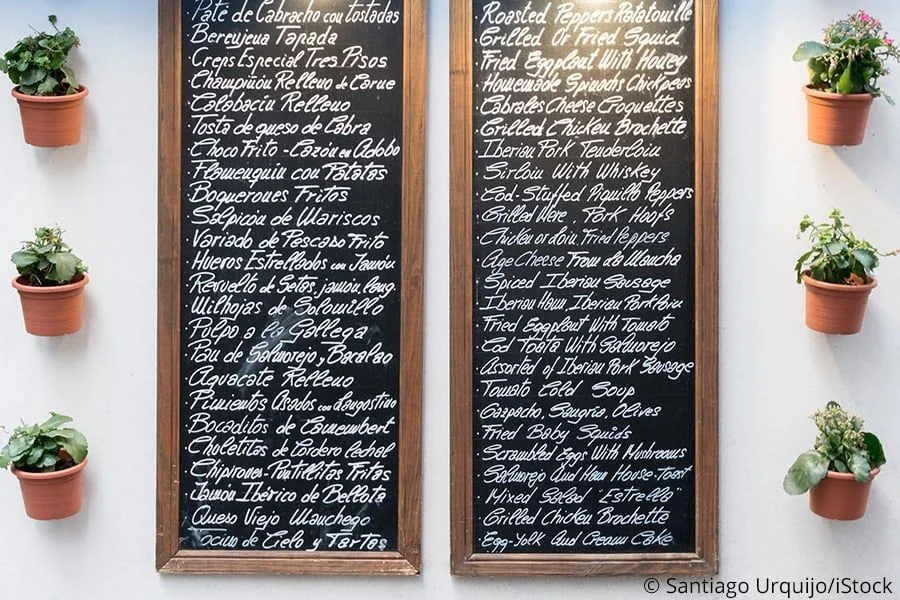 Paté de Cabracho con tostadas
Berenjena Tapada
Creps Especial Tres Pisos
Champiñón Relleno de Carne
Calabacin Relleno
Tosta de queso de Cabra
Choco Frito - Cazón en Adobo
Flamenquin con Patatas
Boquerones Fritos
Salpicón de Mariscos
Variado de Pescaso Frito
Huevos Estrellados con Jamón
Revuelto de Setas, jamón, lang.
Milhojas de Solomillo
Pulpo a la Gallega
Pan de Salmorejo y Bacalao
Aguacate Relleno
Pimientos Asados con Langostino
Bocaditos de Camembert
Chuletitas de Cordero lechal
Chipirones-Puntillitas Fritas
Jamón Ibérico de Bellota
Queso Viejo Manchego
Tocino de Cielo y Tartas
Roasted Peppers Ratatouille
Grilled Or Fried Squid
Fried Eggplant With Honey
Homemade Spinachs Chickpeas
Cabrales Cheese Croquettes
Grilled Chicken Brochette
Iberian Pork Tenderloin
Sirloin With Whiskey
Cod-Stuffed Piquillo Peppers
Grilled Mere, Pork Hoofs
Chicken or Loin, Fried Peppers
Age Cheese From da Mancha
Spiced Iberian Sausage
Iberian Ham, Iberian Pork Loin
Fried Eggplant With Tomato
Cod Toata With Salmorejo
Assorted of Iberian Pork Sausage
Tomato Cold Soup
Gazpacho, Sangria, Olives
Fried Baby Squids
Scrambled Eggs With Mushrooms
Salmorejo And Ham House-Toast
Mixed Salad "Estrella"
Grilled Chicken Brochette
Egg-Yolk And Cream Cake
© Santiago Urquijo/iStock